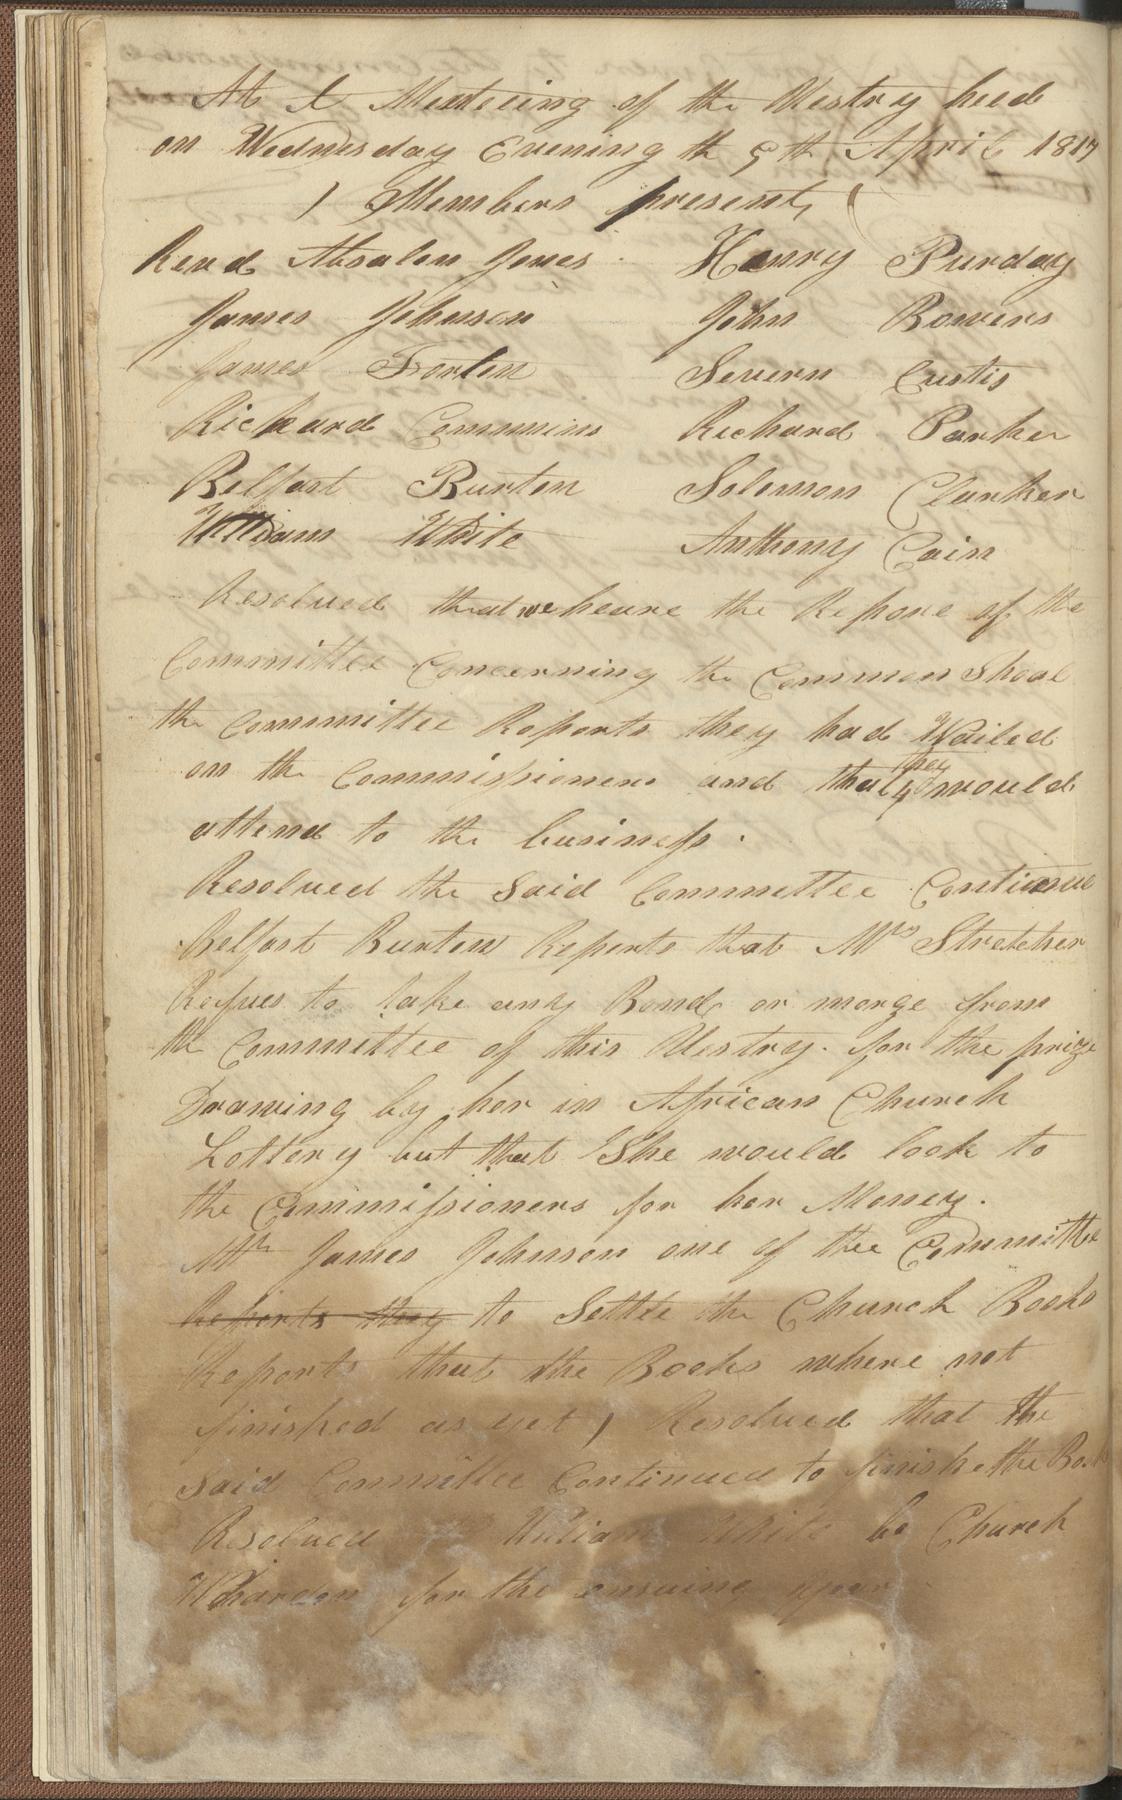 At A Meeteeing of the Vestry heed
on Wednesday Evening th 9th April 1817
) Members present, (
Revd Absalon Jones Henry Purday
James Johnson John Bowers
James Forten Severn Custis
Richard Commins Richard Parker
Belfast Burton Solomon Clarker
William White Anthony Cain
Resolued that we heare the Repore of the
Committee Concerning the Common Shoal
the Committee Reports they had Waited
on the Commissioners and that they would
attend to the business.
Resolued the Said Committee Continue
Belfast Burton Reports that Mrs Stretcher
Refues to take any Bond or morge from
the Committee of this Vestry. for the prize
Drawing by her in African Church
Lottery but that She would look to
the Commissioners for her Money.
Mr James Johnson one of the Committe
Reports they to Settle the Church Books
Reports that the Books where not
finished as yet ) Resolued that the
Said Committee Continued to finish the
Resolued William White be Church
Wharden for the ensuing year